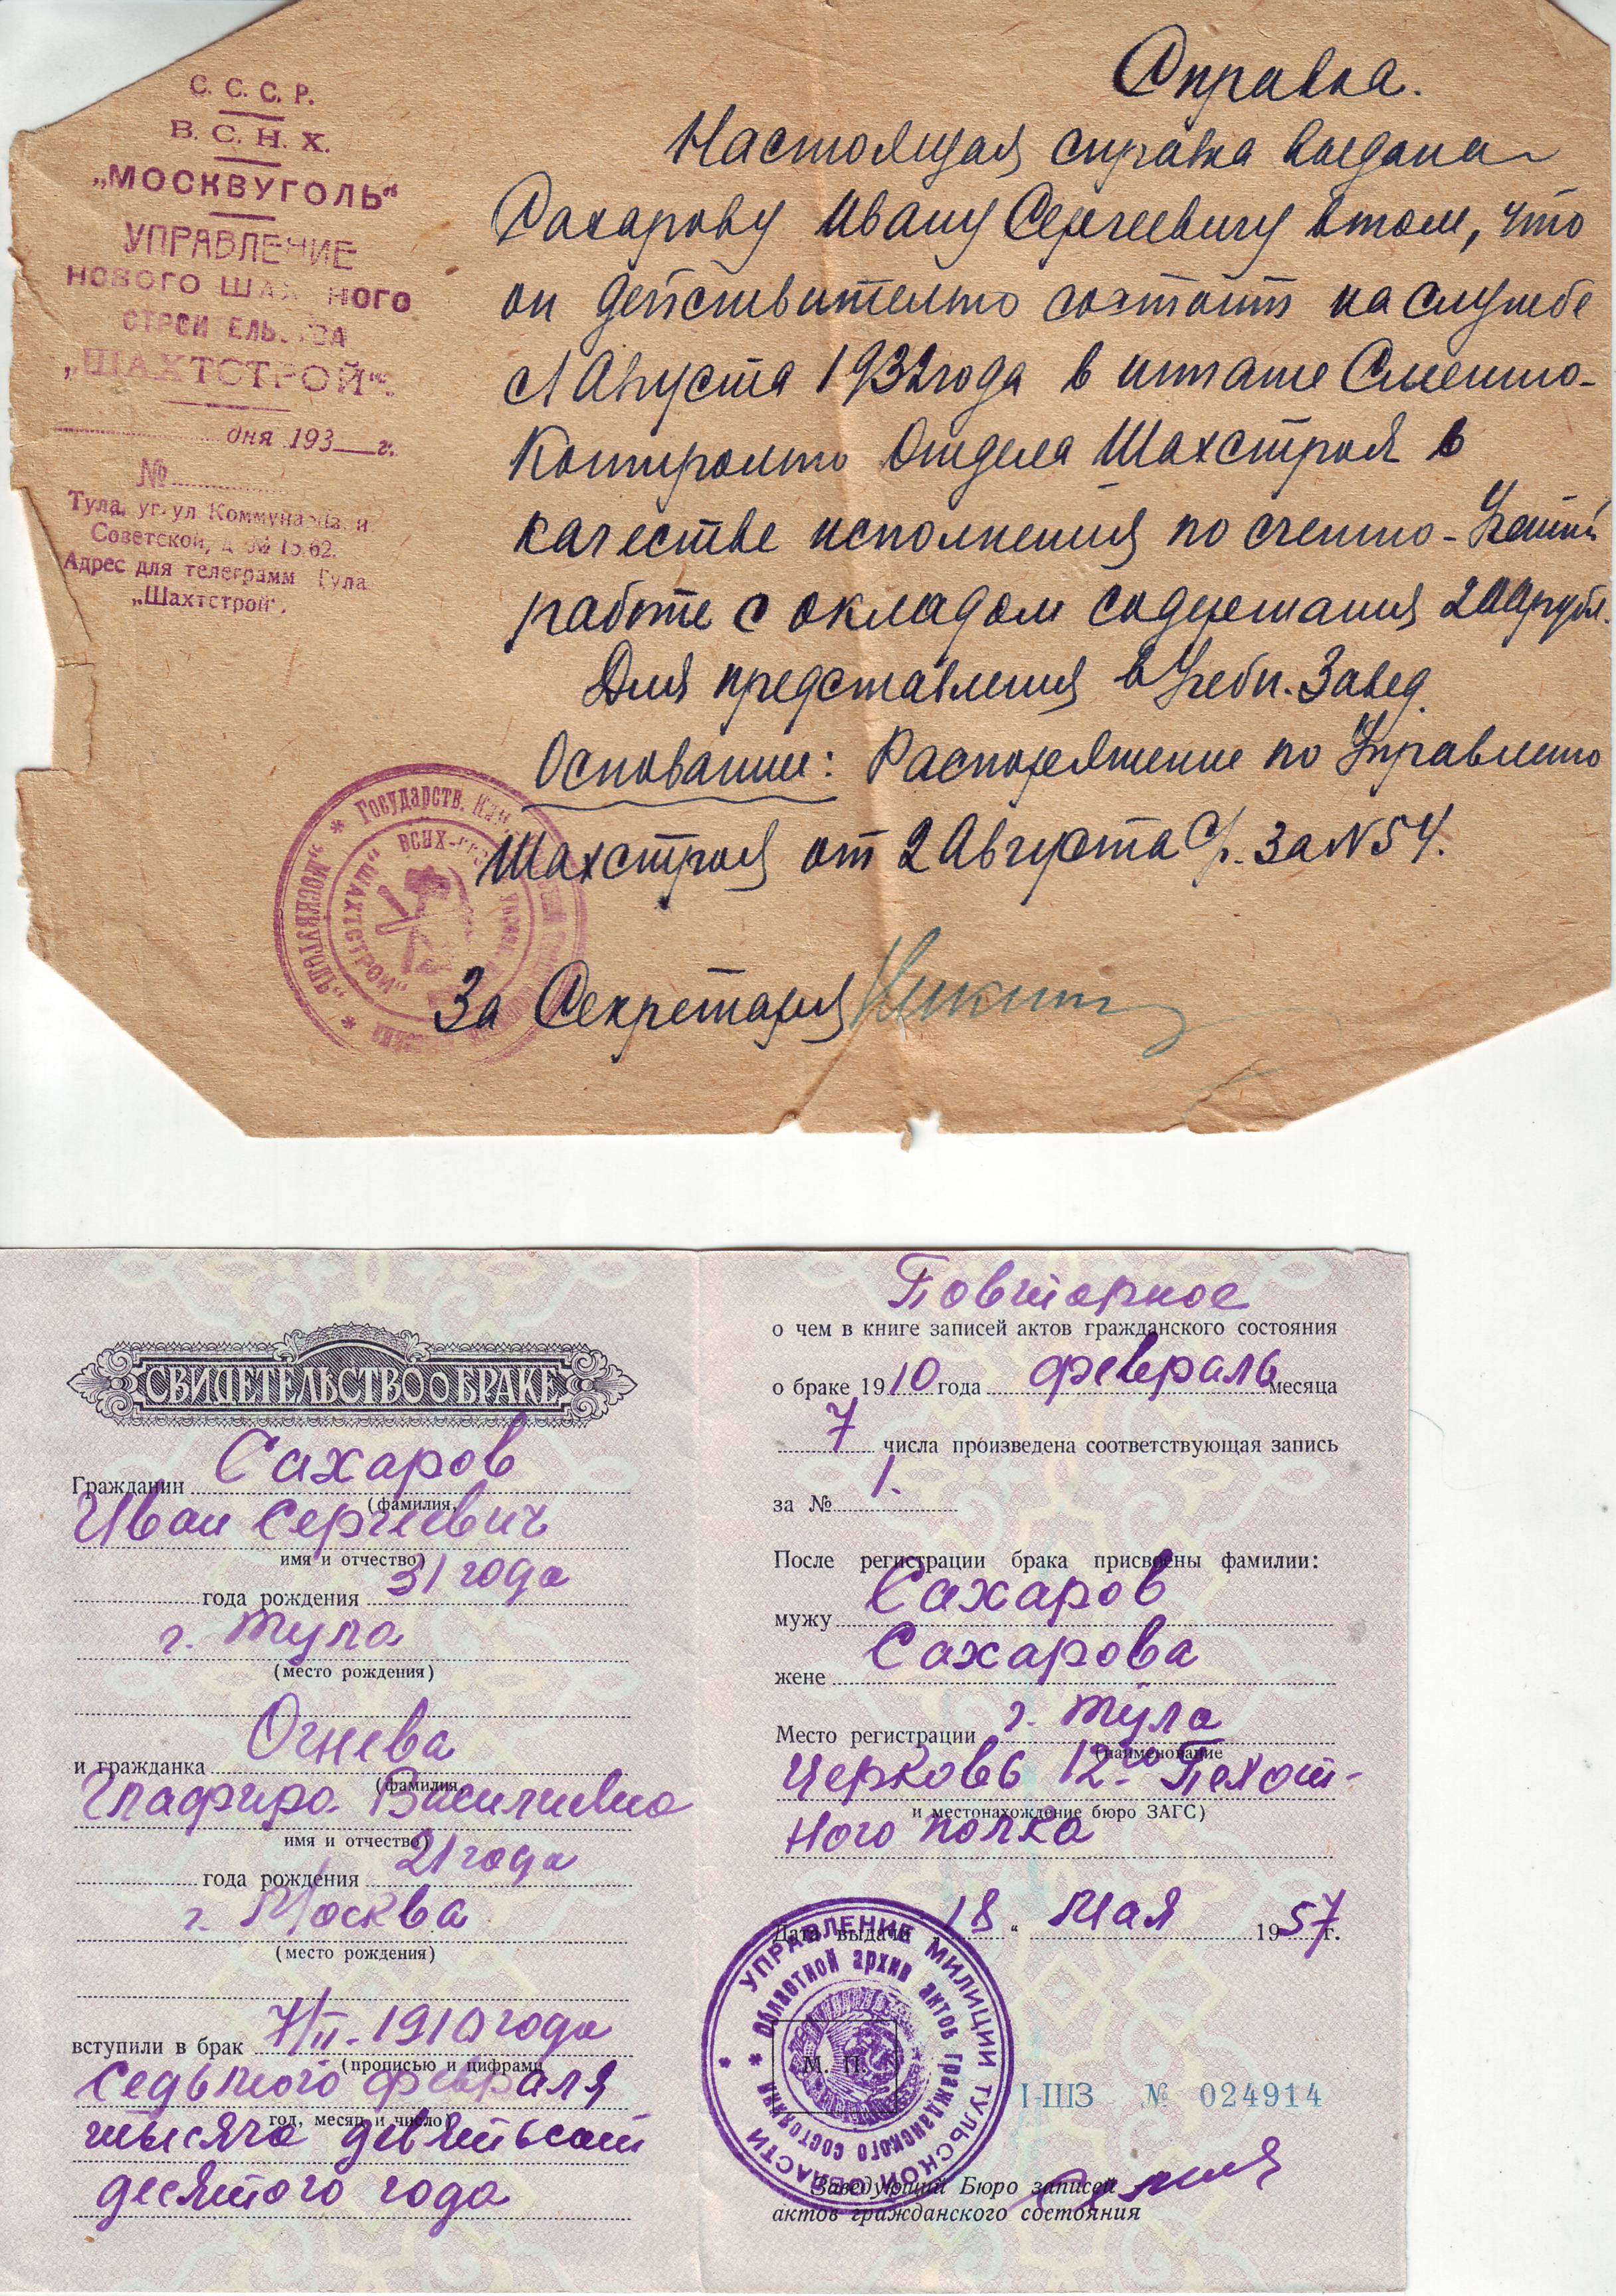 С. С. С. Р.
В. С. Н. Х.
„МОСКВУГОЛЬ“
УПРАВЛЕНИЕ
НОВОГО ШАХТНОГО
СТРОИТЕЛЬСТВА
„ШАХТСТРОЙ“.
дня 193 г.
№
Тула, уг. ул Коммунаров и
Советской, д. № 15/62.
Адрес для телеграмм Тула
„Шахтстрой“.
Справка.
Настоящая справка выдана
Сахарову Ивану Сергеевичу в том, что
он действительно состоит на службе
с 1 Августа 1932 года в штате Сметно-
Контрольно Отдела Шахстроя в
качестве исполнения по счетно-
работе с окладом содержания 200 рубл.
Для представления в Учебн. Завед.
Основание: Распоряжение по Управлению
Шахстроя от 2 Августа с/г. за N 54.
За Секретаря
Государств.
„МОСКВУГОЛЬ“
ВСНХ
„ШАХТСТРОЙ“
СВИДЕТЕЛЬСТВО О БРАКЕ
Гражданин Сахаров
(фамилия,
Иван Сергеевич
имя и отчество)
года рождения 31 года
г. Тула
(место рождения)
и гражданка Огнева
(фамилия,
Глафира Васильевна
имя и отчество)
года рождения 21 года
г. Москва
(место рождения)
вступили в брак 7/II-1910 года
(прописью и цифрами
Седьмого февраля
год, месяц и число)
тысяча девятьсот
десятого года
Повторное
о чем в книге записей актов гражданского состояния
о браке 1910 года февраль месяца
7 числа произведена соответствующая запись
за № 1.
После регистрации брака присвоены фамилии:
мужу Сахаров
жене Сахарова
Место регистрации г. Тула
(наименование
Церковь 12-го Пехот-
и местонахождение бюро ЗАГС)
ного полка
Дата выдачи „18“ Мая 1957 г.
УПРАВЛЕНИЕ МИЛИЦИИ ТУЛЬСКОЙ ОБЛАСТИ
Областной архив актов гражданского состояния
М. П.
I-ШЗ № 024914
Заведующий Бюро записей
актов гражданского состояния